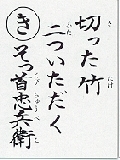 切った竹
二ついただく
き
そっ首忠兵衛